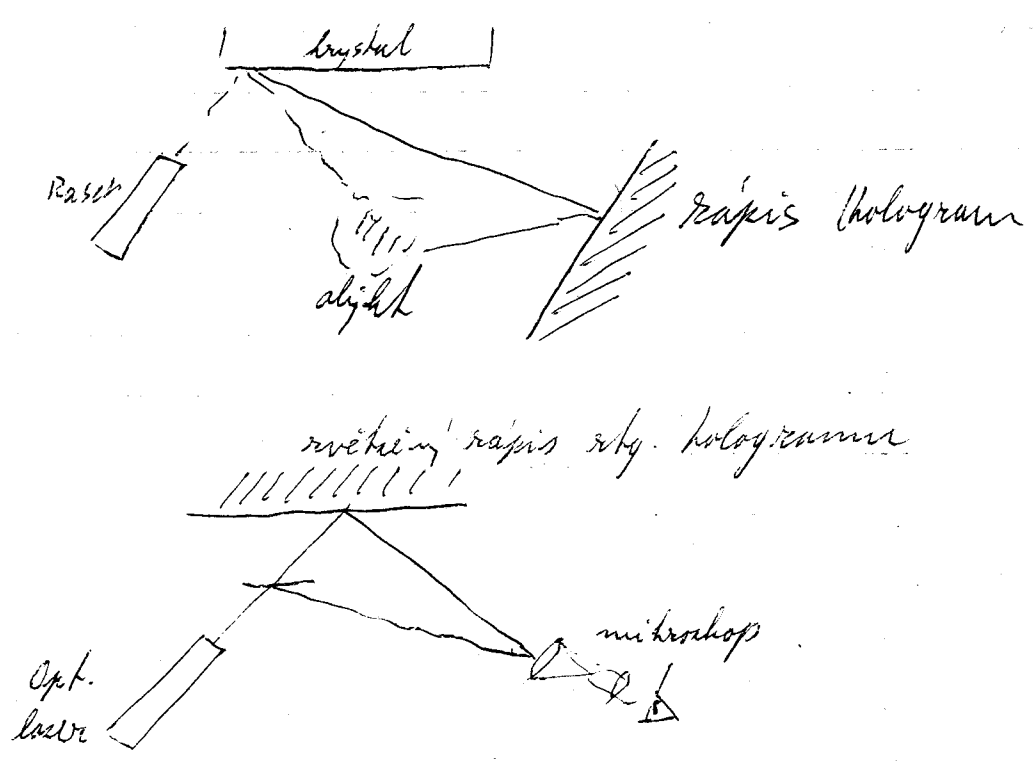 krystal
Raser
zápis hologram
objekt
zvětšený zápis rtg. hologramu
mikroskop
Opt.
lazer